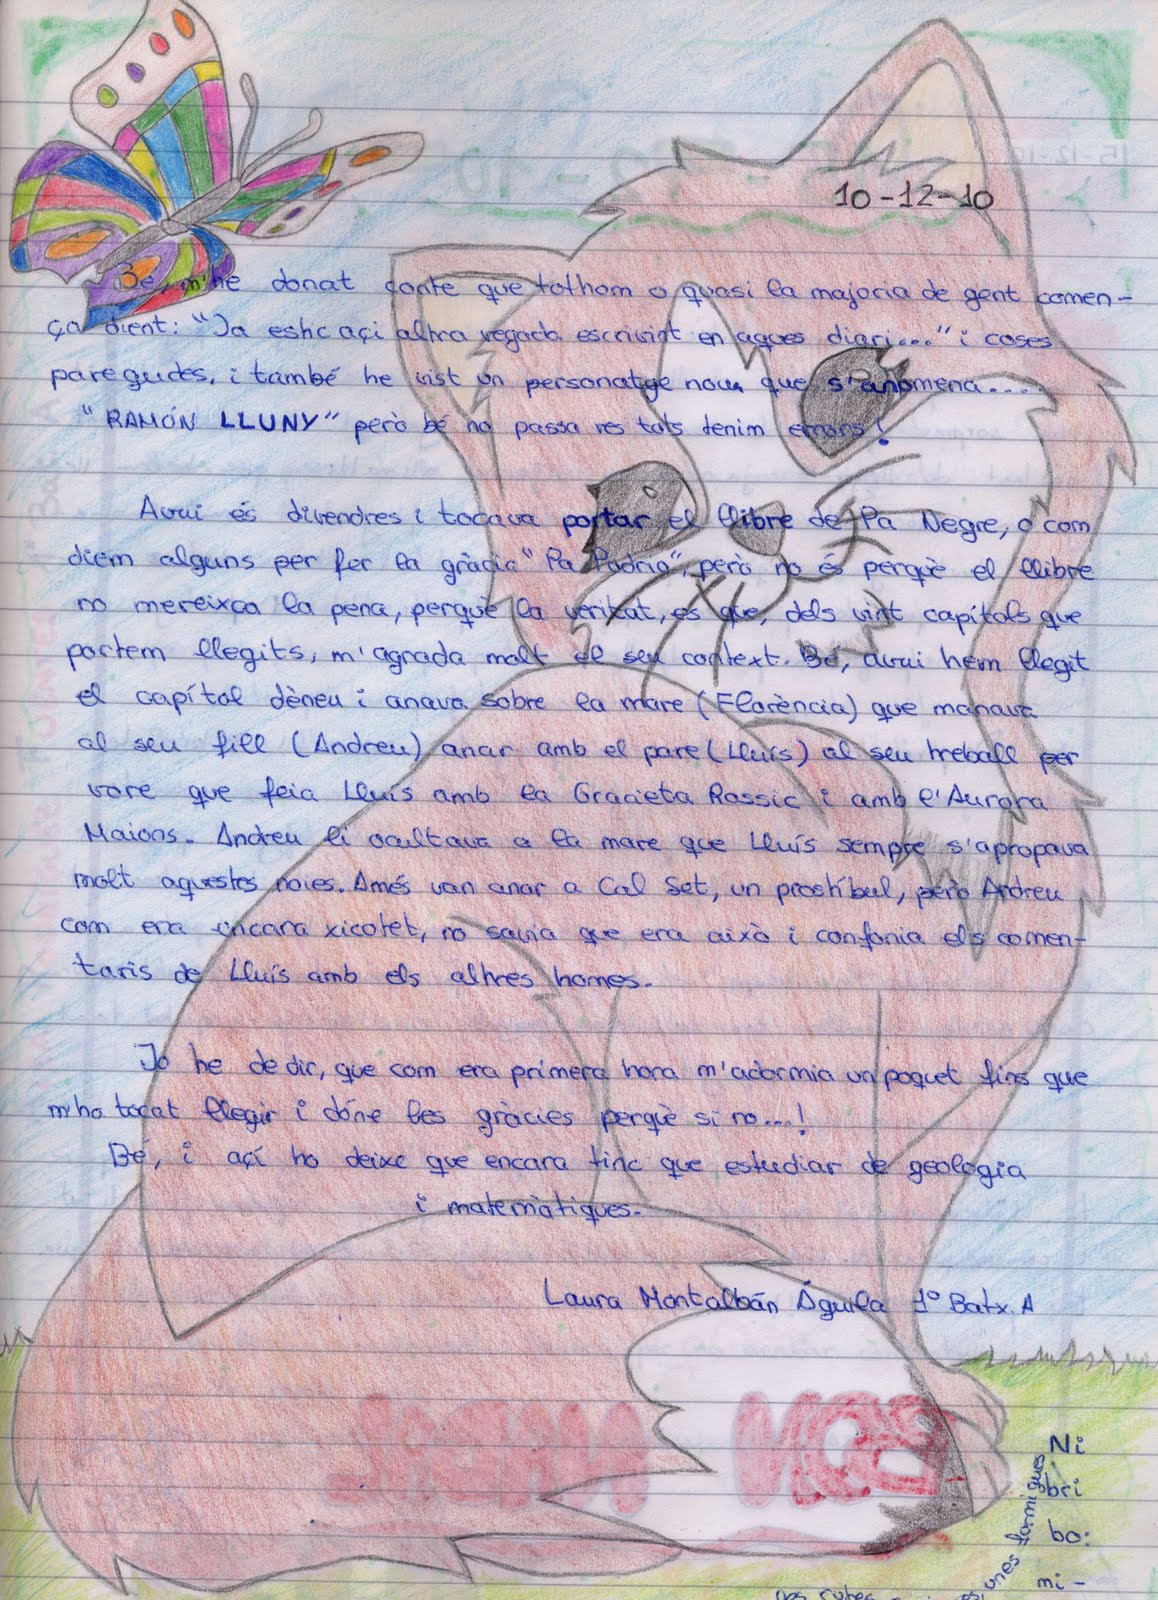 10-12-10
Bé, m'he donat conte que tothom o quasi la majoria de gent comen-
ça dient: "Ja estic açí altra vegada escrivint en aques diari...." i coses
paregudes, i també he vist un personatge nou que s'anomena....
"RAMÓN LLUNY" però bé no passa res tots tenim errors!
Avui és divendres i tocava portar el llibre de Pa Negre, o com
diem alguns per fer la gràcia "Pa Podrio", però no és perquè el llibre
no mereixca la pena, perquè la veritat, es que, dels vint capítols que
portem llegits, m'agrada molt el seu context. Bé, avui hem llegit
el capítol dèneu i anava sobre la mare (Florència) que manava
al seu fill (Andreu) anar amb el pare (Lluís) al seu treball per
vore que feia Lluís amb la Gracieta Rossic i amb l'Aurora
Maions. Andreu li ocultava a la mare que Lluís sempre s'apropava
molt aquestes noies. Amés van anar a Cal Set, un prostíbul, però Andreu
com era encara xicotet, no savia que era això i confonia els comen-
taris de Lluís amb els altres homes.
Jo he de dir, que com era primera hora m'adormia un poquet fins que
m'ha tocat llegir i dóne les gràcies perquè si no....!
Bé, i açí ho deixe que encara tinc que estudiar de geologia
i matemàtiques.
Laura Montalbán Águila 1º Batx. A
Ni
bri
bo:
mi-
unes formigues